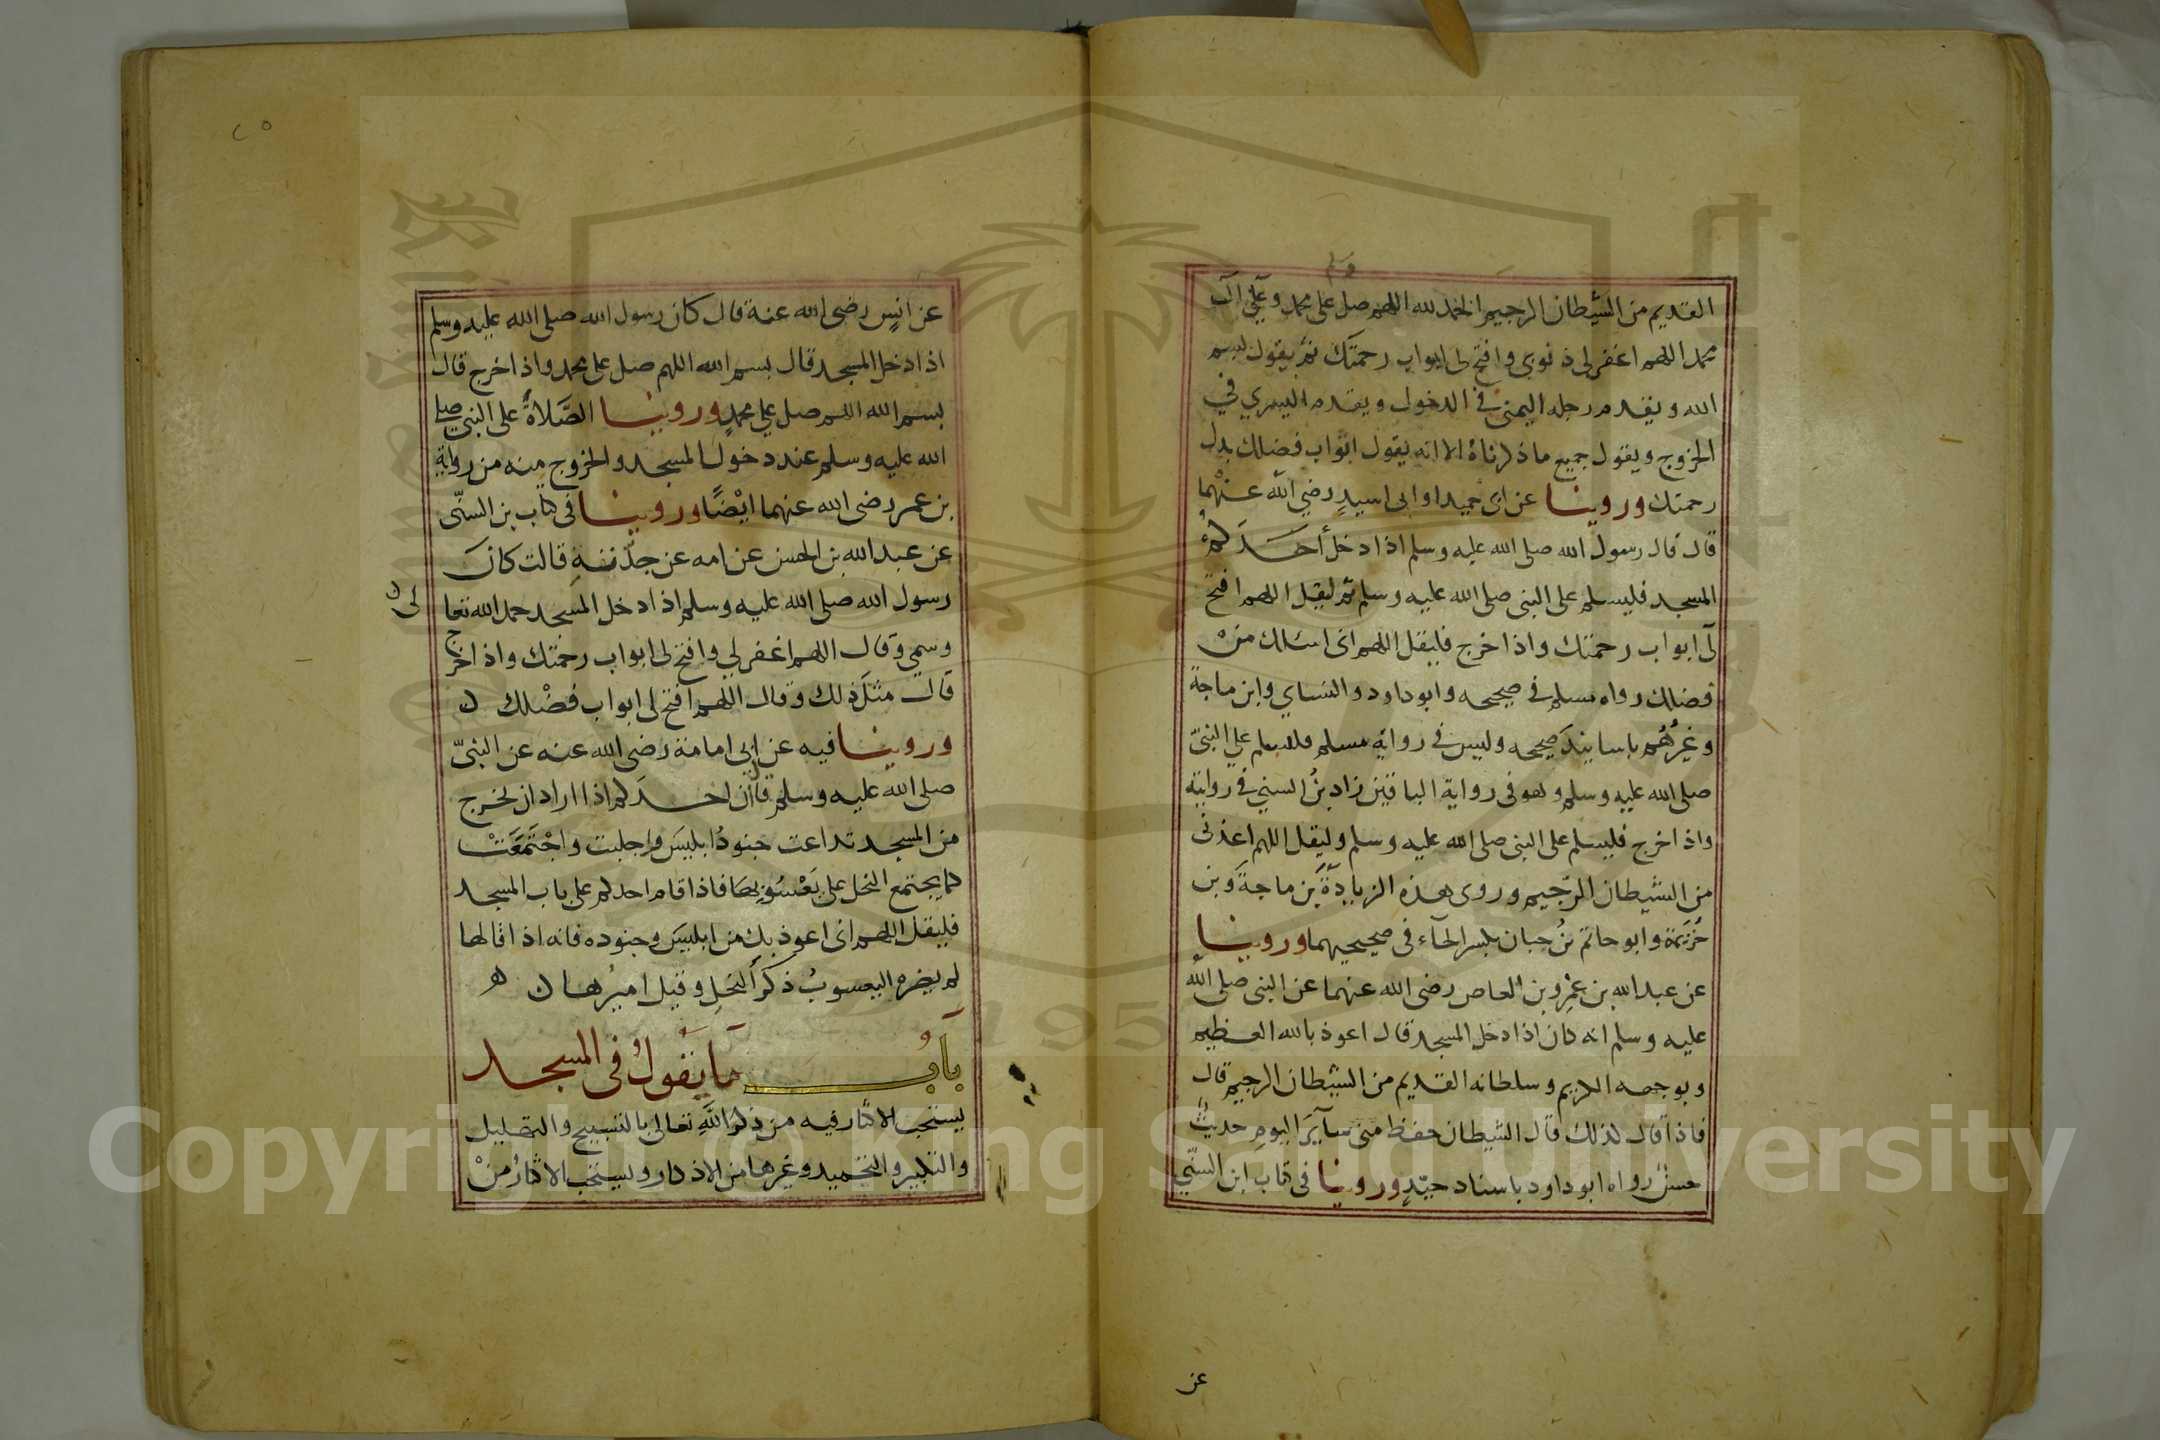 القديم من الشيطان الرجيم الحمد لله اللهم صل على محمد وعلى آل
محمد اللهم اغفر لى ذنوبى وافتح لى ابواب رحمتك ثم يقول بسم
الله ويقدم رجله اليمنى فى الدخول ويقدم اليسرى في
الخروج ويقول جميع ما ذكرناه الا انه يقول ابواب فضلك بدل
رحمتك وروينا عن ابى حميد او ابى اسيد رضي الله عنهما
قال قال رسول الله صلى الله عليه وسلم اذا دخل أحدكم
المسجد فليسلم على النبى صلى الله عليه وسلم ثم ليقل اللهم افتح
لى ابواب رحمتك واذا خرج فليقل اللهم انى اسئلك من
فضلك رواه مسلم فى صحيحه وابو داود والنساي وابن ماجة
وغيرُهُم باسانيد صحيحه وليس فى رواية مسلم فليسلم علي النبىّ
صلى الله عليه وسلم وهو فى رواية الباقين زاد بنُ السنيِ فى روايته
واذا خرج فليسلم على النبى صلى الله عليه وسلم وليقل اللهم اعذنى
من الشيطان الرّجيم وروى هذه الزيادةَ بن ماجةَ وبن
خُزيمة وابو حاتم بنُ حبان بكسر الحآء فى صحيحيهما وروينا
عن عبد الله بن عمرِو بن العاص رضى الله عنهما عن النبى صلى الله
عليه وسلم انه كان اذا دخل المسجد قال اعوذ بالله العظيم
وبوجهه الكريم وسلطانه القديم من الشيطان الرجيم قال
فاذا قال ذلك قال الشيطان حفظ منى سآيرَ اليومِ حديثٌ
حسنٌ رواه ابو داود باسناد جيّدٍ وروينا فى كتاب ابن السنّي
عن
٢٥
عن انسٍ رضى الله عنه قال كان رسول الله صلى الله عليه وسلم
اذا دخل المسجد قال بسم الله اللهم صل على محمد واذا خرج قال
بسم الله اللهم صل علي محمدٍ وروينا الصَّلاةُ على النبى صلى
الله عليه وسلم عند دخول المسجد والخروج منه من رواية
بن عمر رضى الله عنهما ايْضًا وروينا فى كتاب بن السنّى
عن عبد الله بن الحسن عن امه عن جدّته قالت كان
رسول الله صلى الله عليه وسلم اذا دخل المسجد حمد الله تعا
لى
وسمي وقال اللهم اغفر لي وافتح لى ابواب رحمتك واذا خرج
قال مثلَ ذلك وقال اللهم افتح لى ابواب فضْلك
وروينا فيه عن ابى امامة رضى الله عنه عن النبىّ
صلى الله عليه وسلم قال ان احدكم اذا اراد ان يخرج
من المسجد تداعت جنودُ ابليسَ واجلبت واجْتَمَعَتْ
كما يجتمع النحل على يَعْسُوبِها فاذا قام احدكم على باب المسجد
فليقل اللهم انى اعوذ بك من ابليسَ وجنوده فانه اذا قالها
لم يضره اليعسوبُ ذكرُ النحلِ وقيل اميرُها
بَابُ مَا يَقُولُ فى المسجد
يستحب الاكثار فيه من ذكر اللهِ تعالى بالتسبيح والتهليل
والتكبير والتحميد وغيرها من الاذكار ويستحب الاكثارُ منْ
Copyright © King Saud University